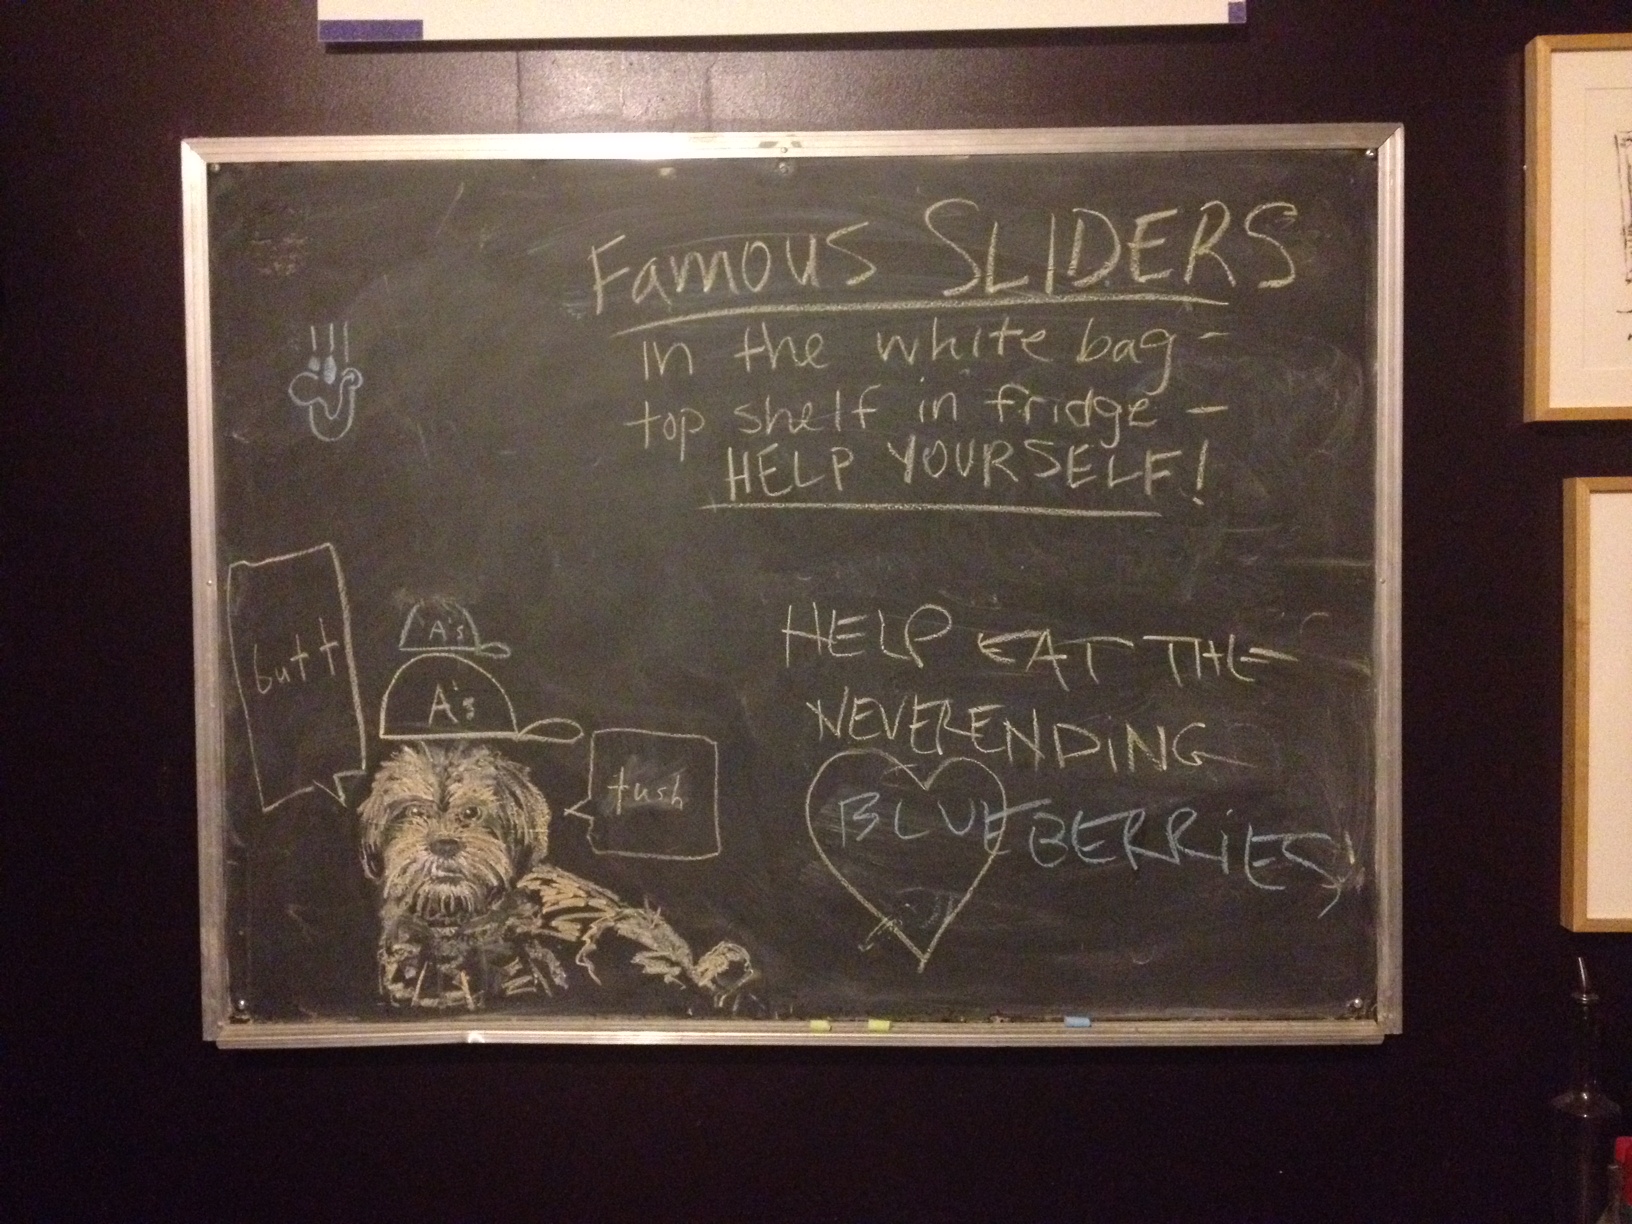 Famous SLIDERS
in the white bag -
top shelf in fridge -
HELP YOURSELF!
butt
A's
A's
tush
HELP EAT THE
NEVERENDING
BLUEBERRIES